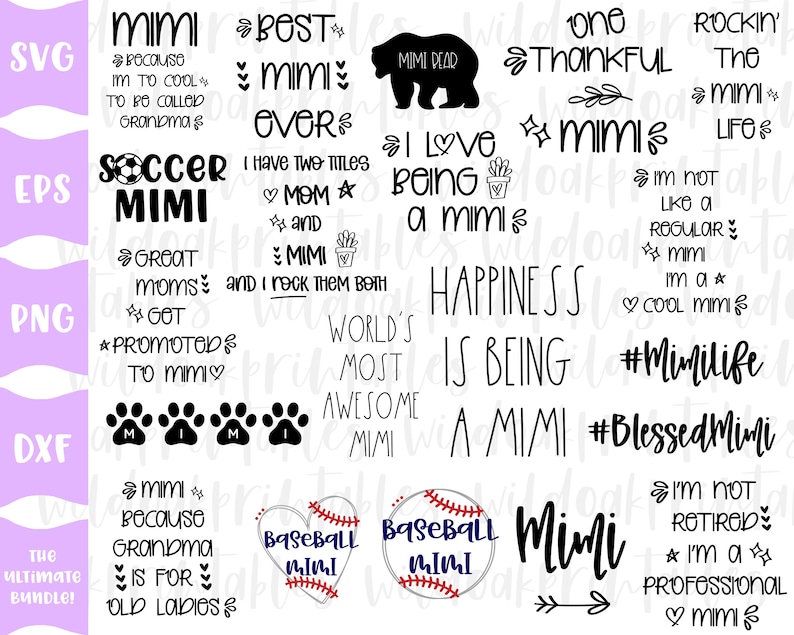 SVG
EPS
PNG
DXF
THE
ULTIMATE
BUNDLE!
MIMI
BECAUSE
I'M TO COOL
TO BE CALLED
GRANDMA
BEST
MIMI
EVER
MIMI BEAR
ONE
THANKFUL
MIMI
ROCKIN'
THE
MIMI
LIFE
SOCCER
MIMI
I HAVE TWO TITLES
MOM
and
MIMI
and I ROCK THEM BOTH
I LOVE
BEING
A MIMI
I'M NOT
LIKE A
REGULAR
MIMI
I'M A
COOL MIMI
GREAT
MOMS
GET
PROMOTED
TO MIMI
WORLD'S
MOST
AWESOME
MIMI
HAPPINESS
IS BEING
A MIMI
#MimiLife
#BlessedMimi
M I M I
MIMI
BECAUSE
GRANDMA
IS FOR
OLD LADIES
BASEBALL
MIMI
BASEBALL
MIMI
Mimi
I'M NOT
RETIRED
I'M A
PROFESSIONAL
MIMI
wildoakprintables